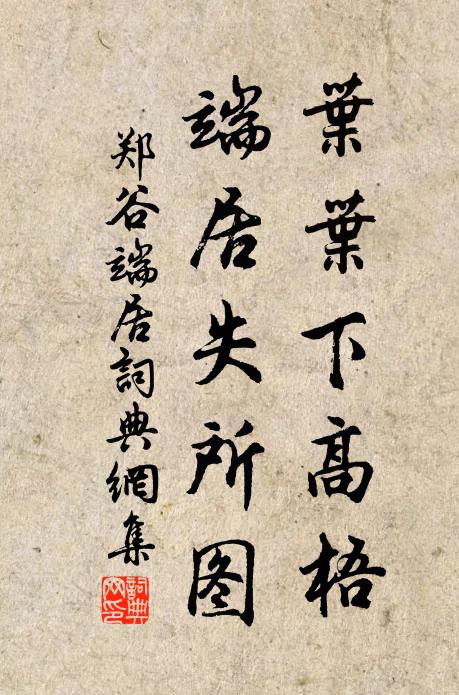 葉葉下高梧
端居失所图
郑谷端居詞典網集
詞典网印